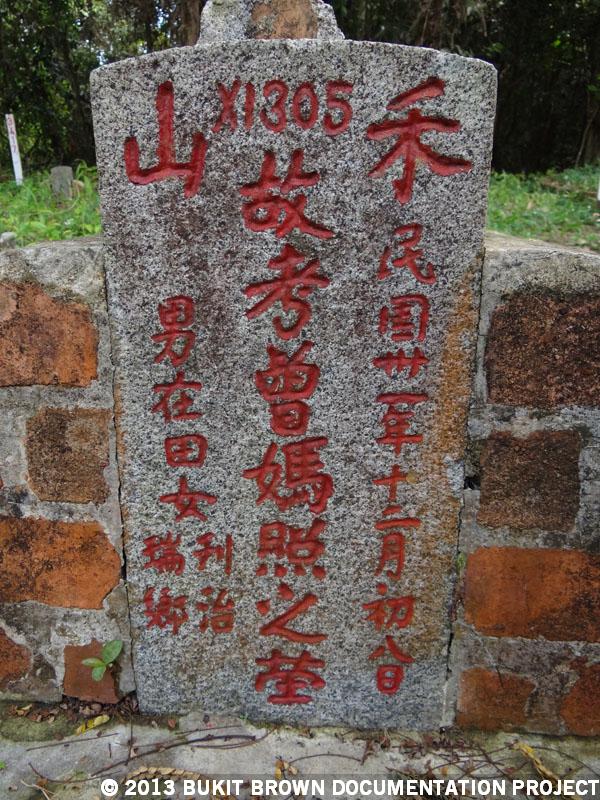 X1305
禾山
民国卅一年十二月初八日
故考曾媽照之塋
男在田女
刊治
瑞鄉
© 2013 BUKIT BROWN DOCUMENTATION PROJECT